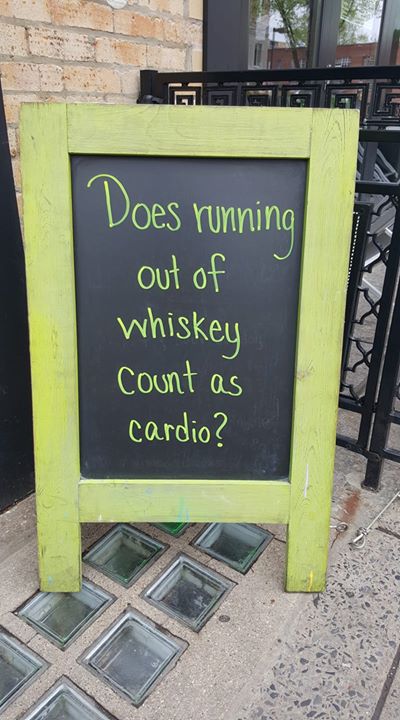 Does running
out of
whiskey
count as
cardio?